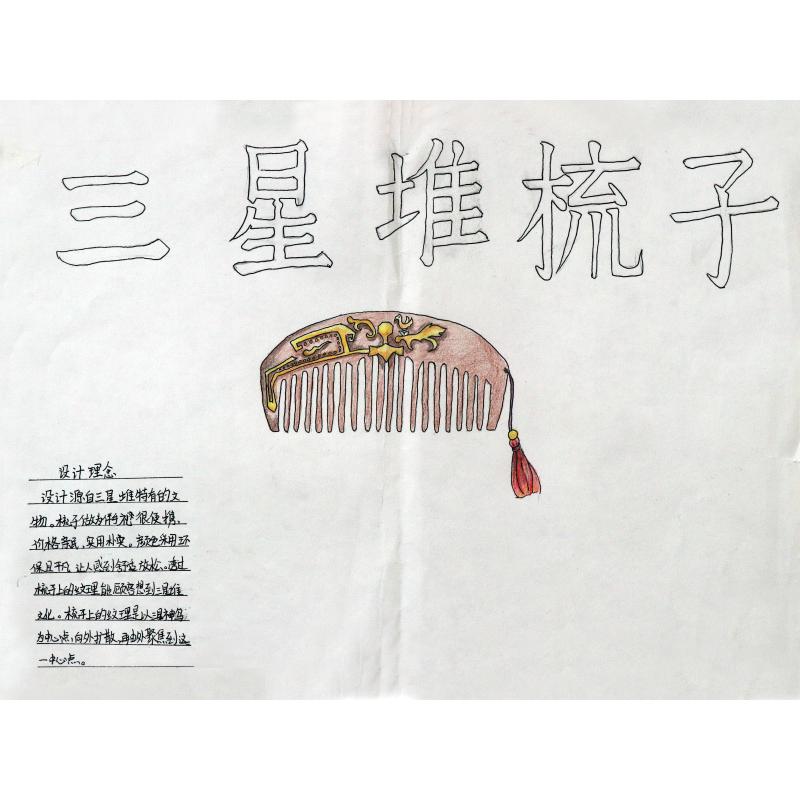 三星堆梳子
设计理念
设计源自三星堆特有的文
物。梳子做为礼物很便携,
价格亲民,实用朴实。颜色采用环
保且平凡 让人感到舒适放松。透过
梳子上的纹理能顾客想到三星堆
文化。梳子上的纹理是以神鸟
为中心点,向外扩散,再由外聚焦到这
一中心点。